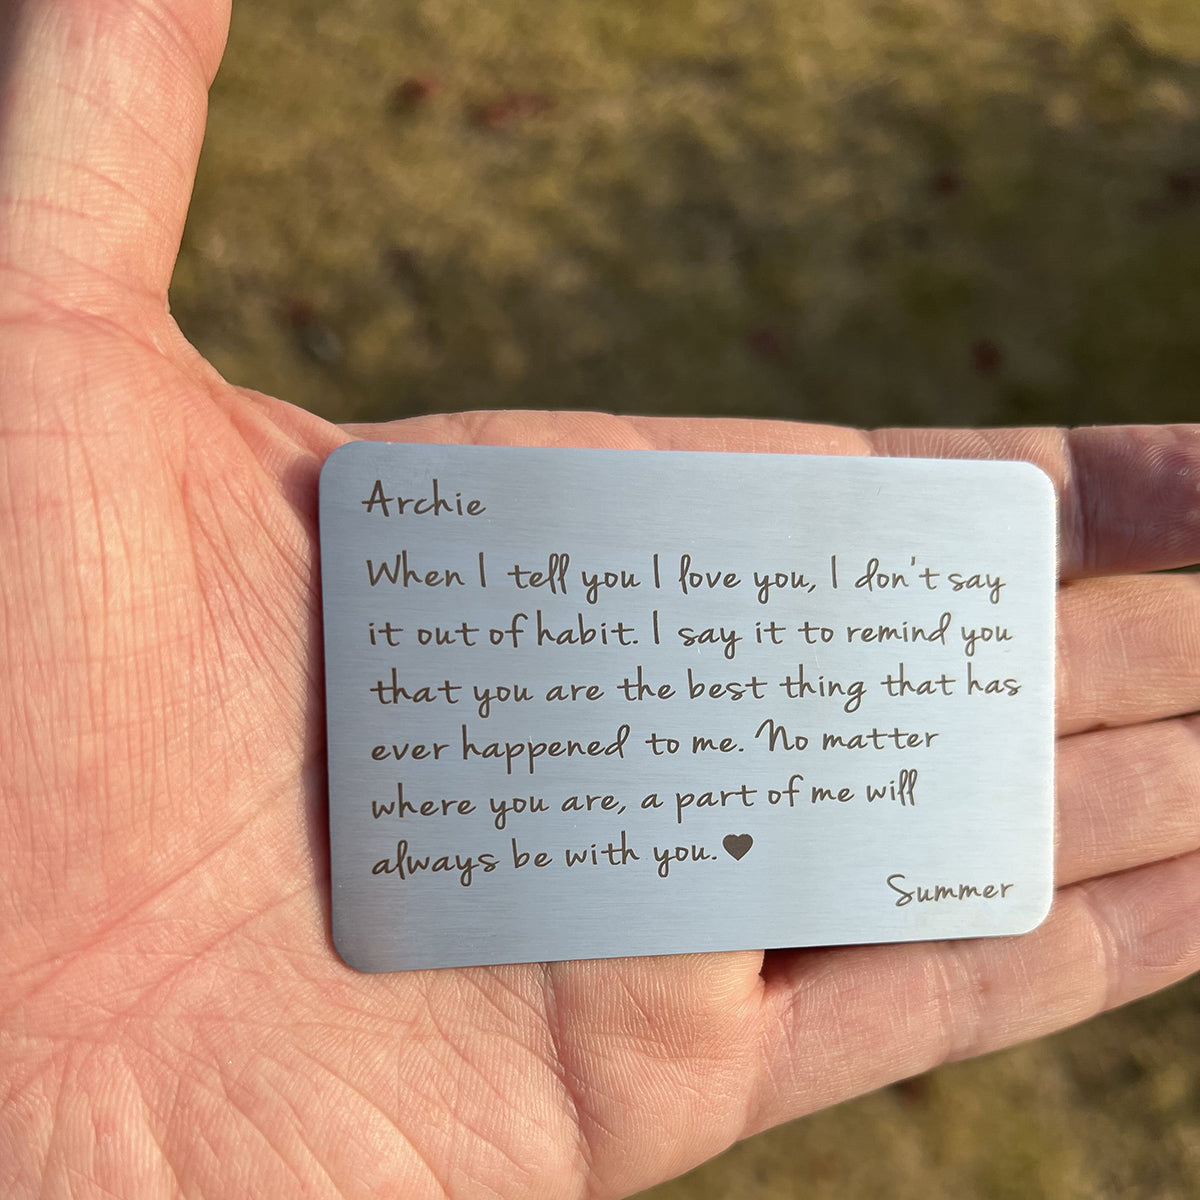 Archie
When I tell you I love you, I don't say
it out of habit. I say it to remind you
that you are the best thing that has
ever happened to me. No matter
where you are, a part of me will
always be with you.♥
Summer